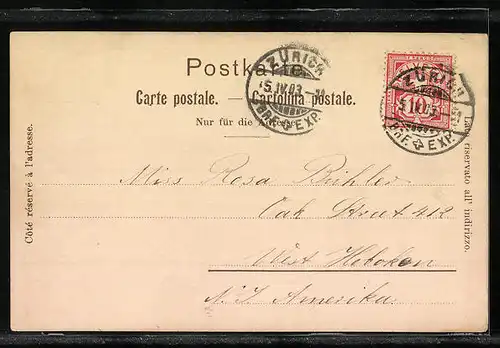 Postkarte.
Carte postale. — Cartolina postale.
Nur für die Adresse.
ZÜRICH
5.IV.03.-11
BRF. EXP.
FRANCO
10
ZÜRICH
5.IV.03.-11
BRF. EXP.
Côté réservé à l'adresse.
Lato riservato all' indirizzo.
Miss Rosa Bühler
Oak Street 412
West Hoboken
N.J. Amerika